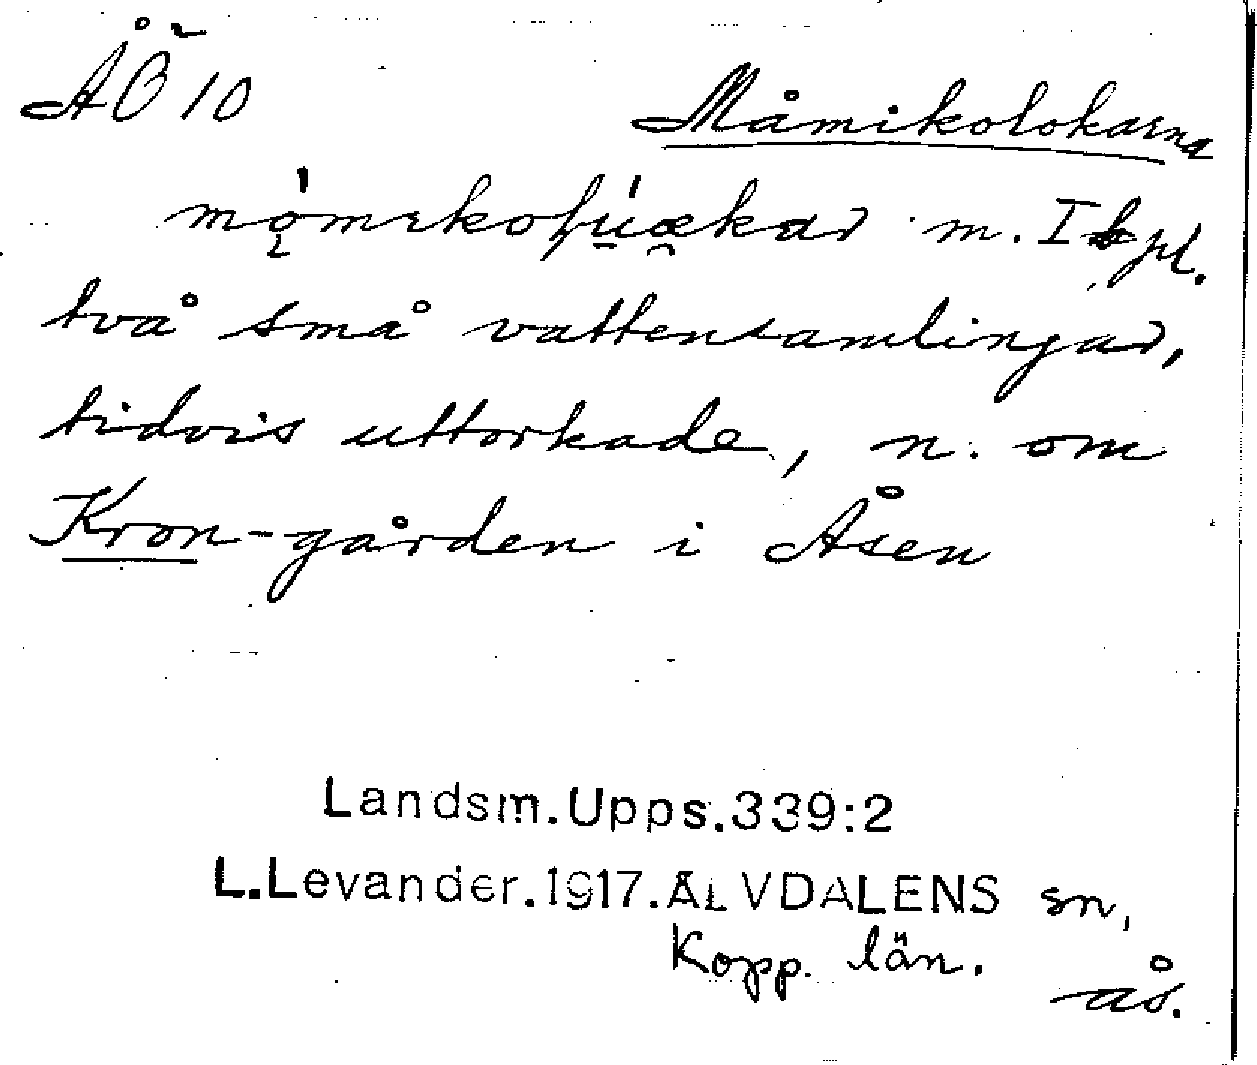 ÅÖ 10
Måmikolokarna
mǫ́mɪkoɫúækar m. I pl.
två små vattensamlingar,
tidvis uttorkade, n. om
Kron-gården i Åsen
Landsm.Upps.339:2
L.Levander.1917.ÄLVDALENS sn,
Kopp. län.
ås.